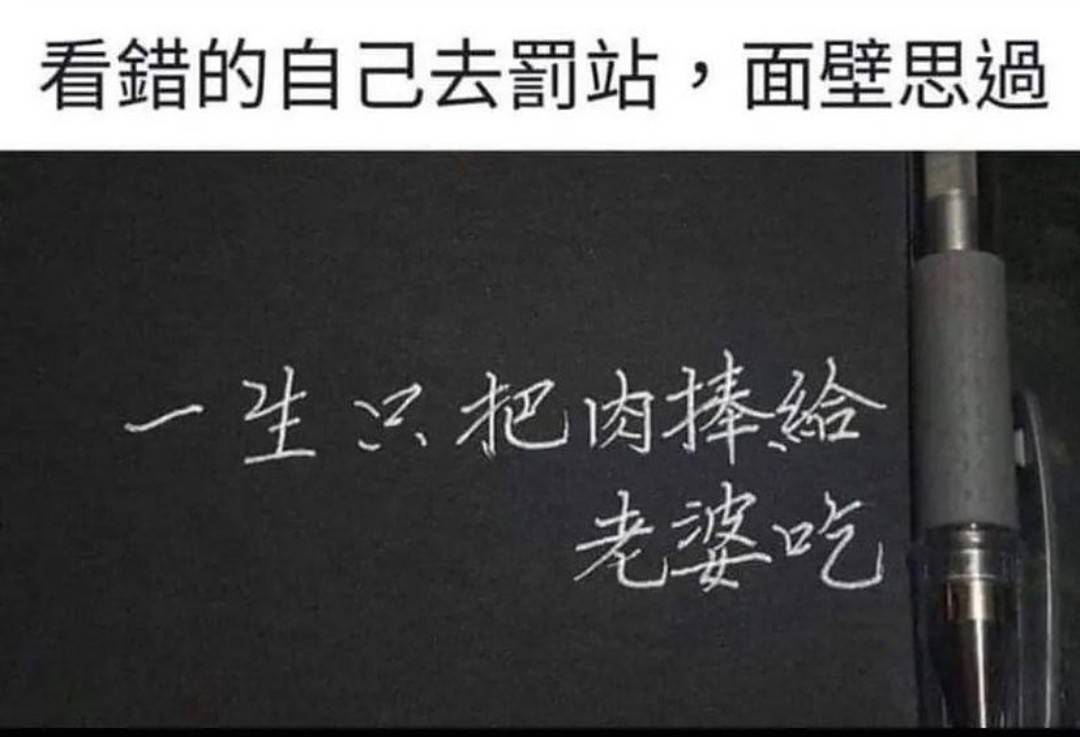 看錯的自己去罰站，面壁思過
一生只把肉捧給
老婆吃